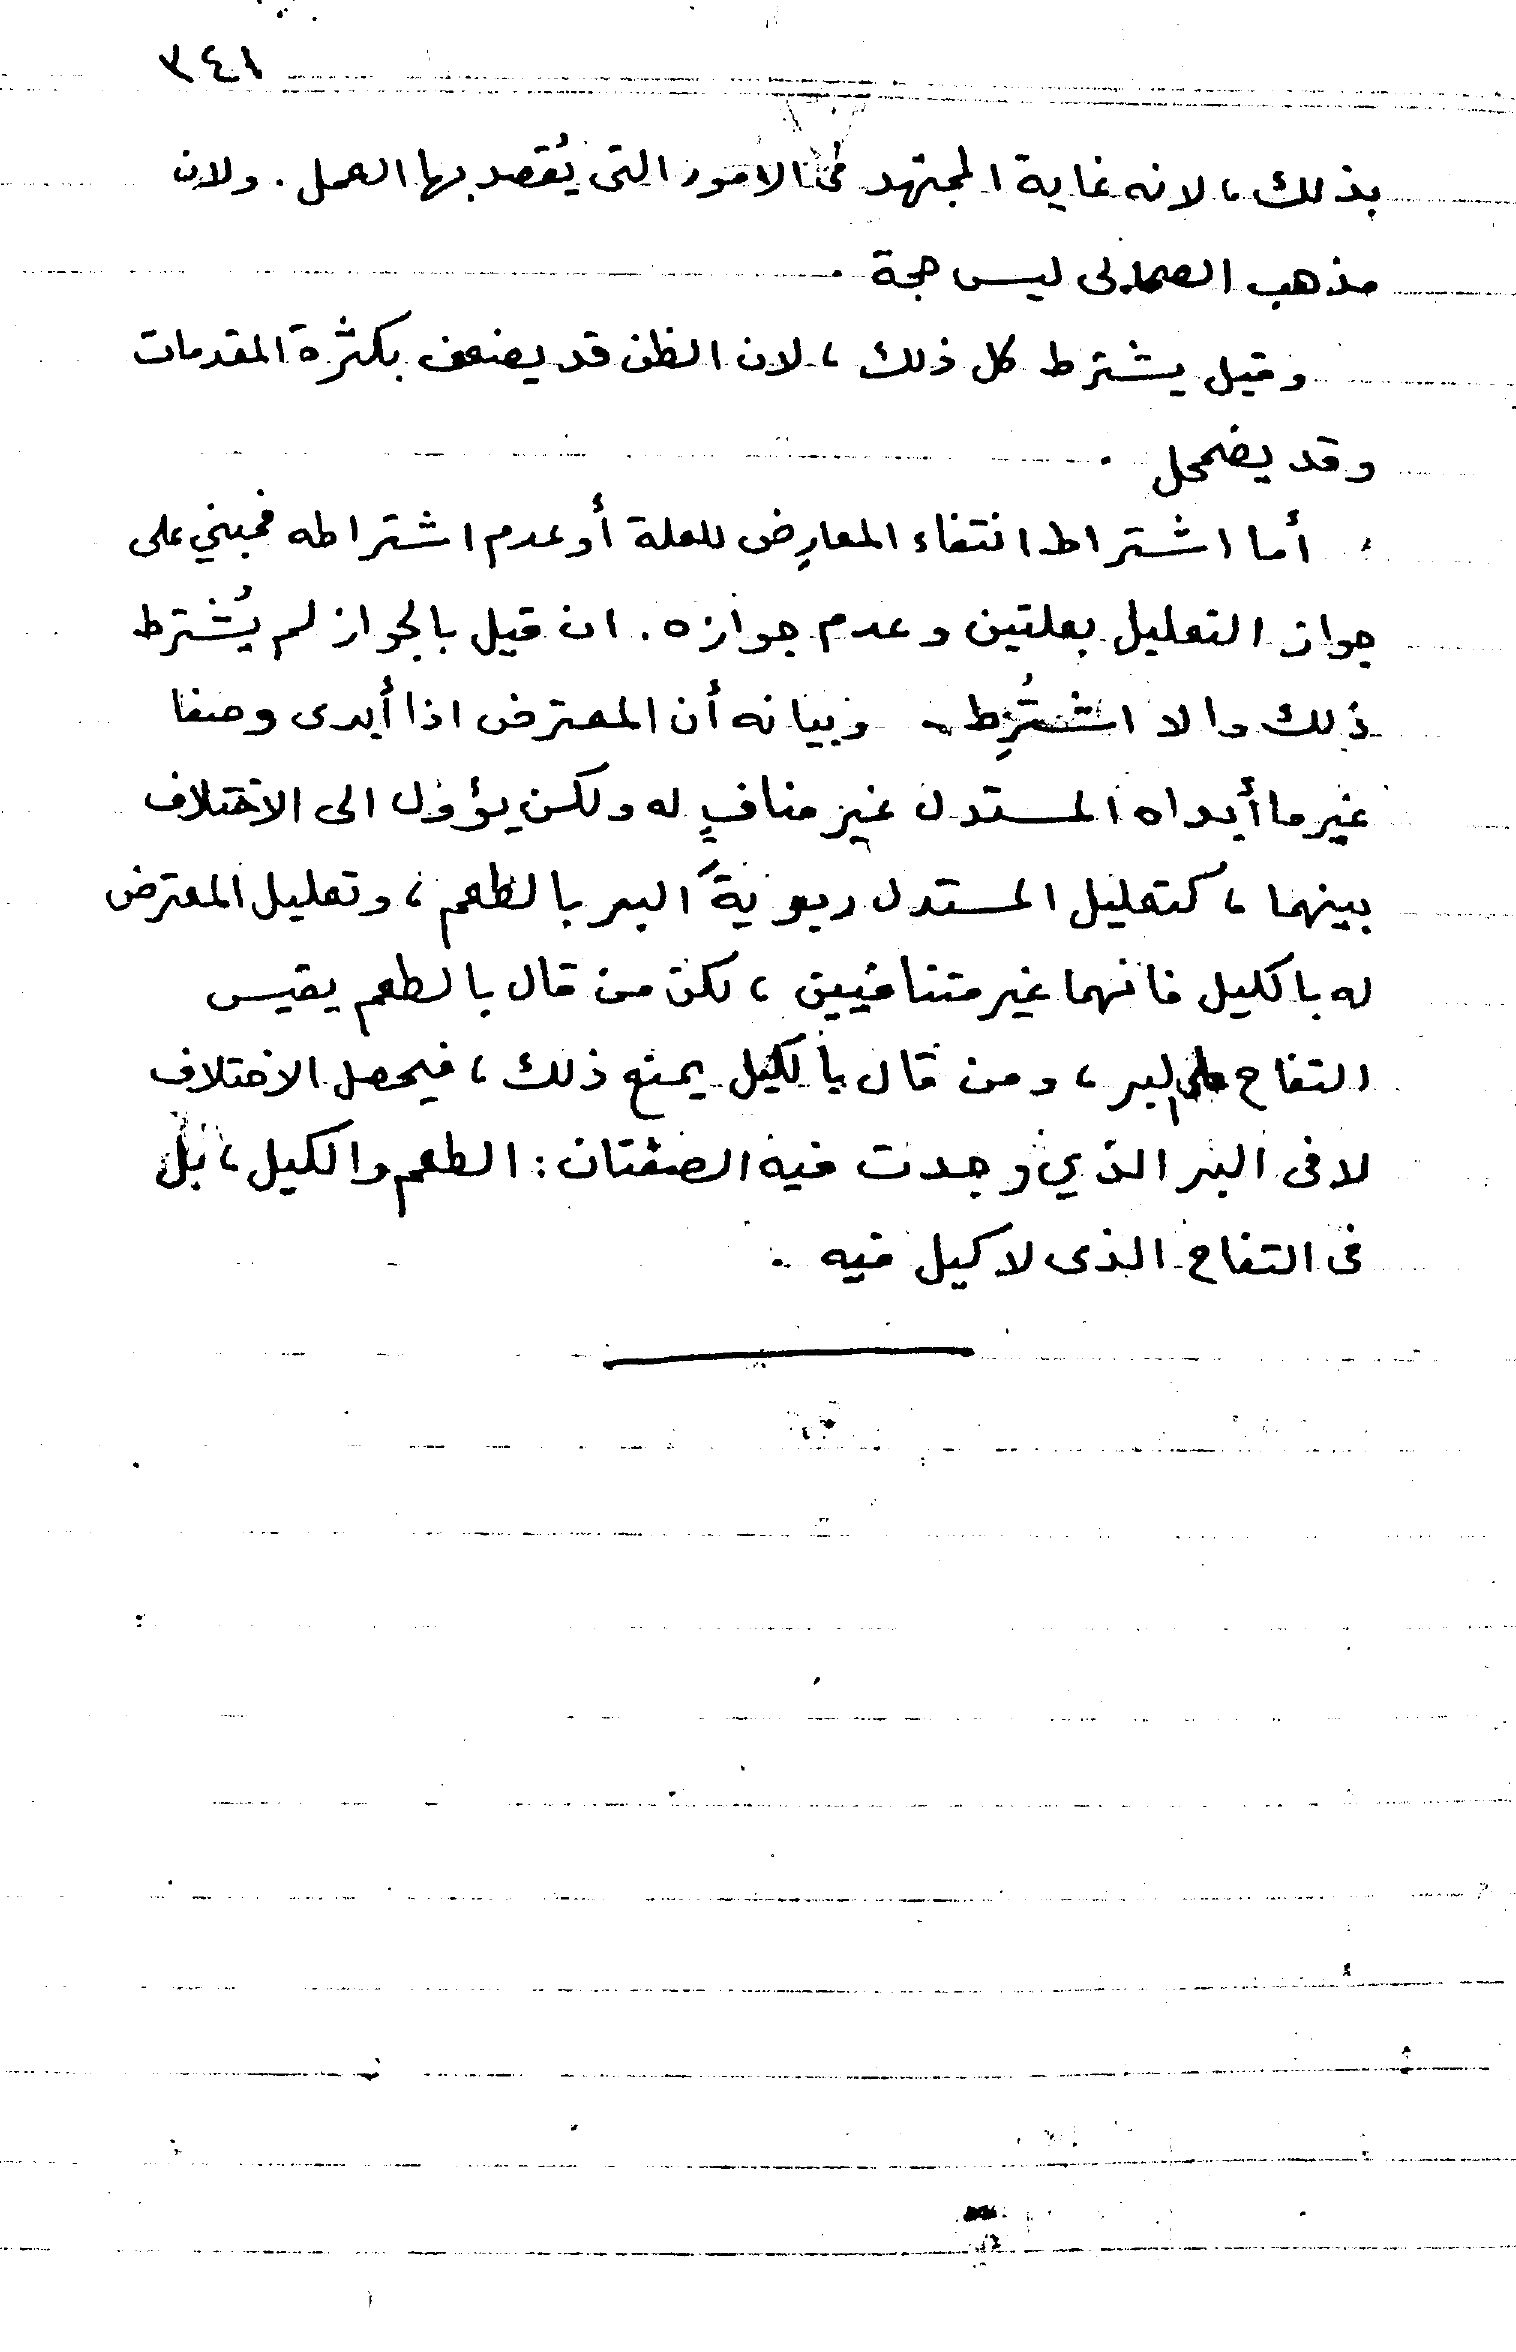 ٣٤١
بذلك، لانه غاية المجتهد فى الامور التى يُقصد بها العمل. ولان
مذهب الصحابى ليس حجة .
وقيل يشترط كل ذلك، لان الظن قد يضعف بكثرة المقدمات
وقد يضمحل .
أما اشتراط انتفاء المعارِض للعلة أو عدم اشتراطه فمبني على
جواز التعليل بعلتين وعدم جوازه. ان قيل بالجواز لم يُشترط
ذلك والا اشتُرِط. وبيانه أن المعترض اذا أبدى وصفا
غير ما أبداه المستدل غير منافٍ له ولكن يؤول الى الاختلاف
بينهما، كتعليل المستدل ربويةَ البر بالطعم، وتعليل المعترض
له بالكيل فانهما غير متنافيين، لكن من قال بالطعم يقيس
التفاح على البر، ومن قال بالكيل يمنع ذلك، فيحصل الاختلاف
لا فى البر الذي وجدت فيه الصفتان: الطعم والكيل، بل
فى التفاح الذى لا كيل فيه .